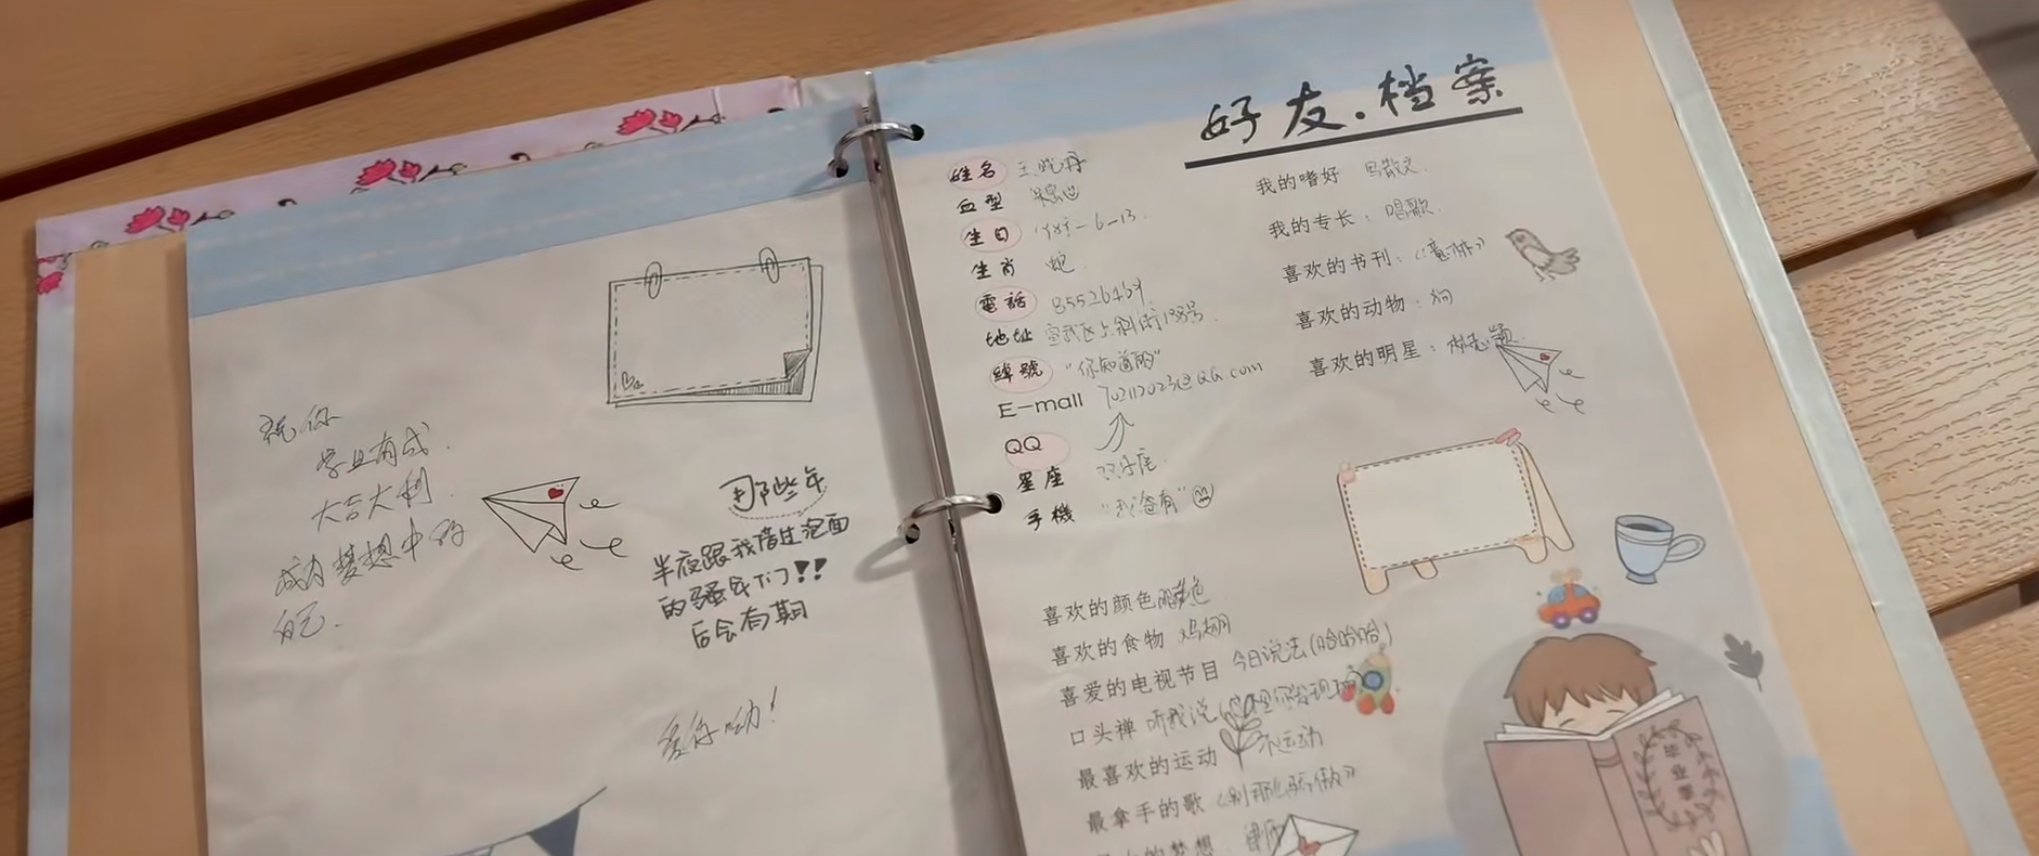 祝你
学业有成.
大吉大利.
成为梦想中的
自己.
那些年
半夜跟我借生泡面
的骚年们!!
后会有期
爱你呦!
好友.档案
姓名 王晓丹
血型
生日 -6-13.
生肖 蛇.
電話 8552646
地址 宣武区上斜街138号.
綽號 "你知道的"
E-mail @QQ.com
QQ
星座 双子座.
手機 "我爸有"
我的嗜好 写散文.
我的专长: 唱歌.
喜欢的书刊:《意林》
喜欢的动物:狗
喜欢的明星:
喜欢的颜色 色
喜欢的食物 鸡翅
喜爱的电视节目 今日说法(哈哈哈)
口头禅 听我说
最喜欢的运动 不运动
最拿手的歌《别那么骄傲》
的梦想
毕业季